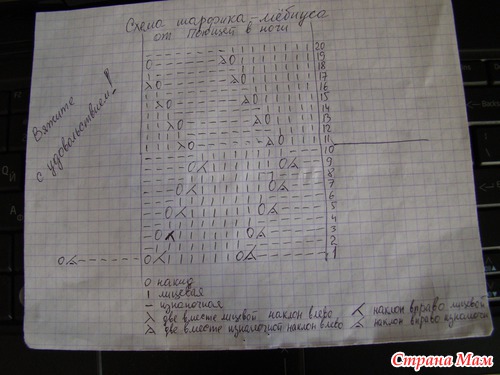 Схема шарфика-мёбиуса
от Поющей в ночи
Вяжите
с удовольствием!
20
19
18
17
16
15
14
13
12
11
10
9
8
7
6
5
4
3
2
1
О накид
I лицевая
– изнаночная
две вместе лицевой наклон влево
две вместе изнаночной наклон влево
наклон вправо лицевой
наклон вправо изнаночн
Страна Мам